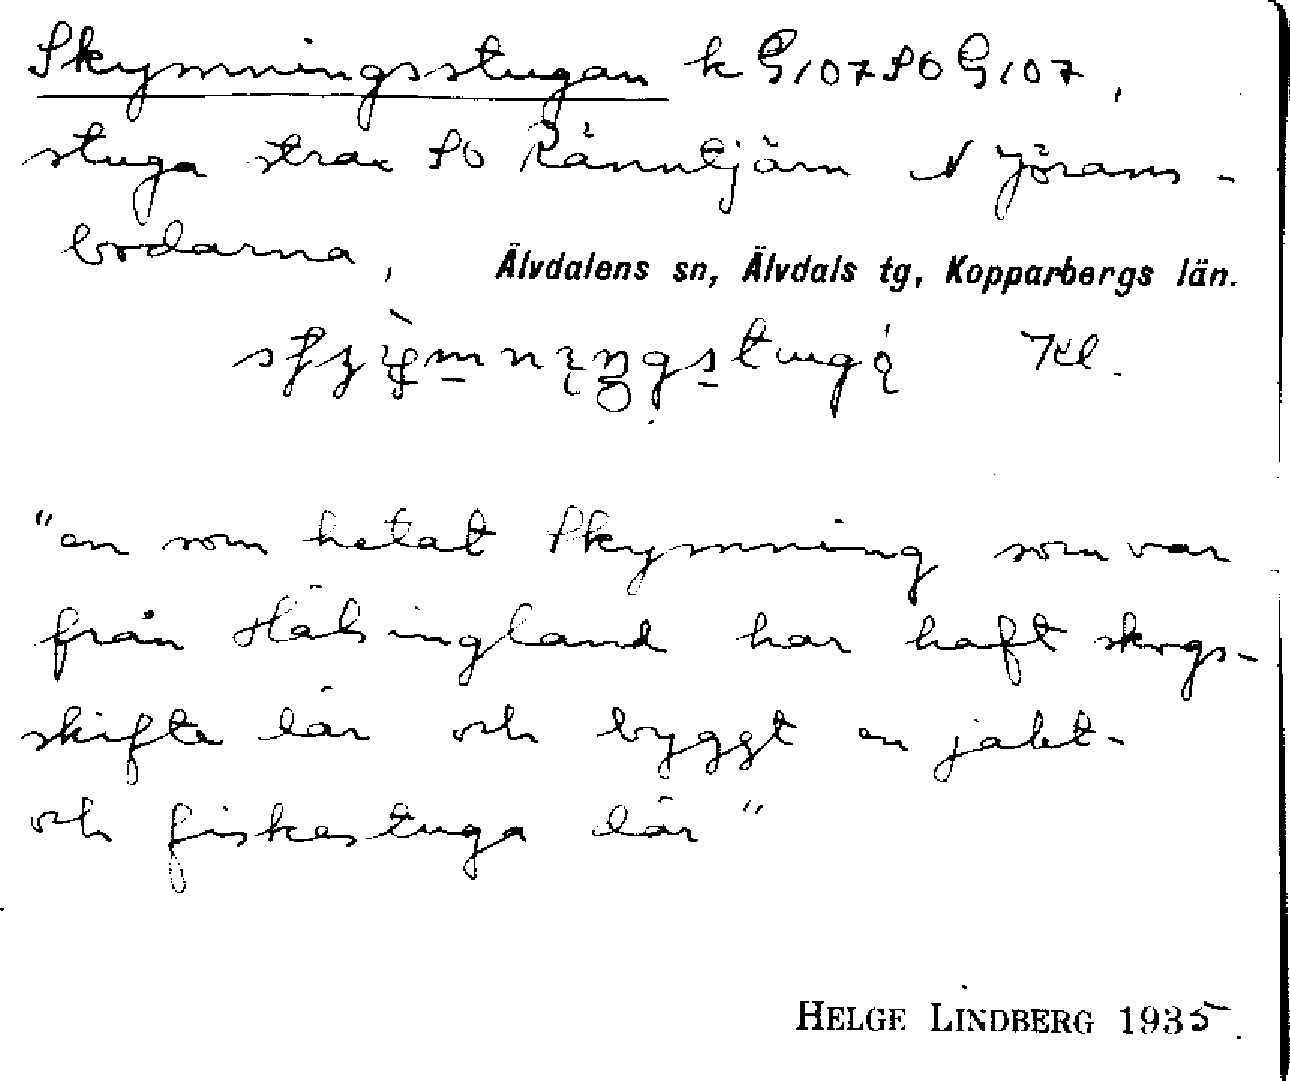 Skymningsstugan k G107 SO G107,
stuga strax SO Ränntjärn N Jörans-
bodarna, Älvdalens sn, Älvdals tg, Kopparbergs län.
"en som hetat Skymning som var
från Hälsingland har haft skogs-
skifte här och byggt en jakt-
och fiskestuga här"
HELGE LINDBERG 1935.